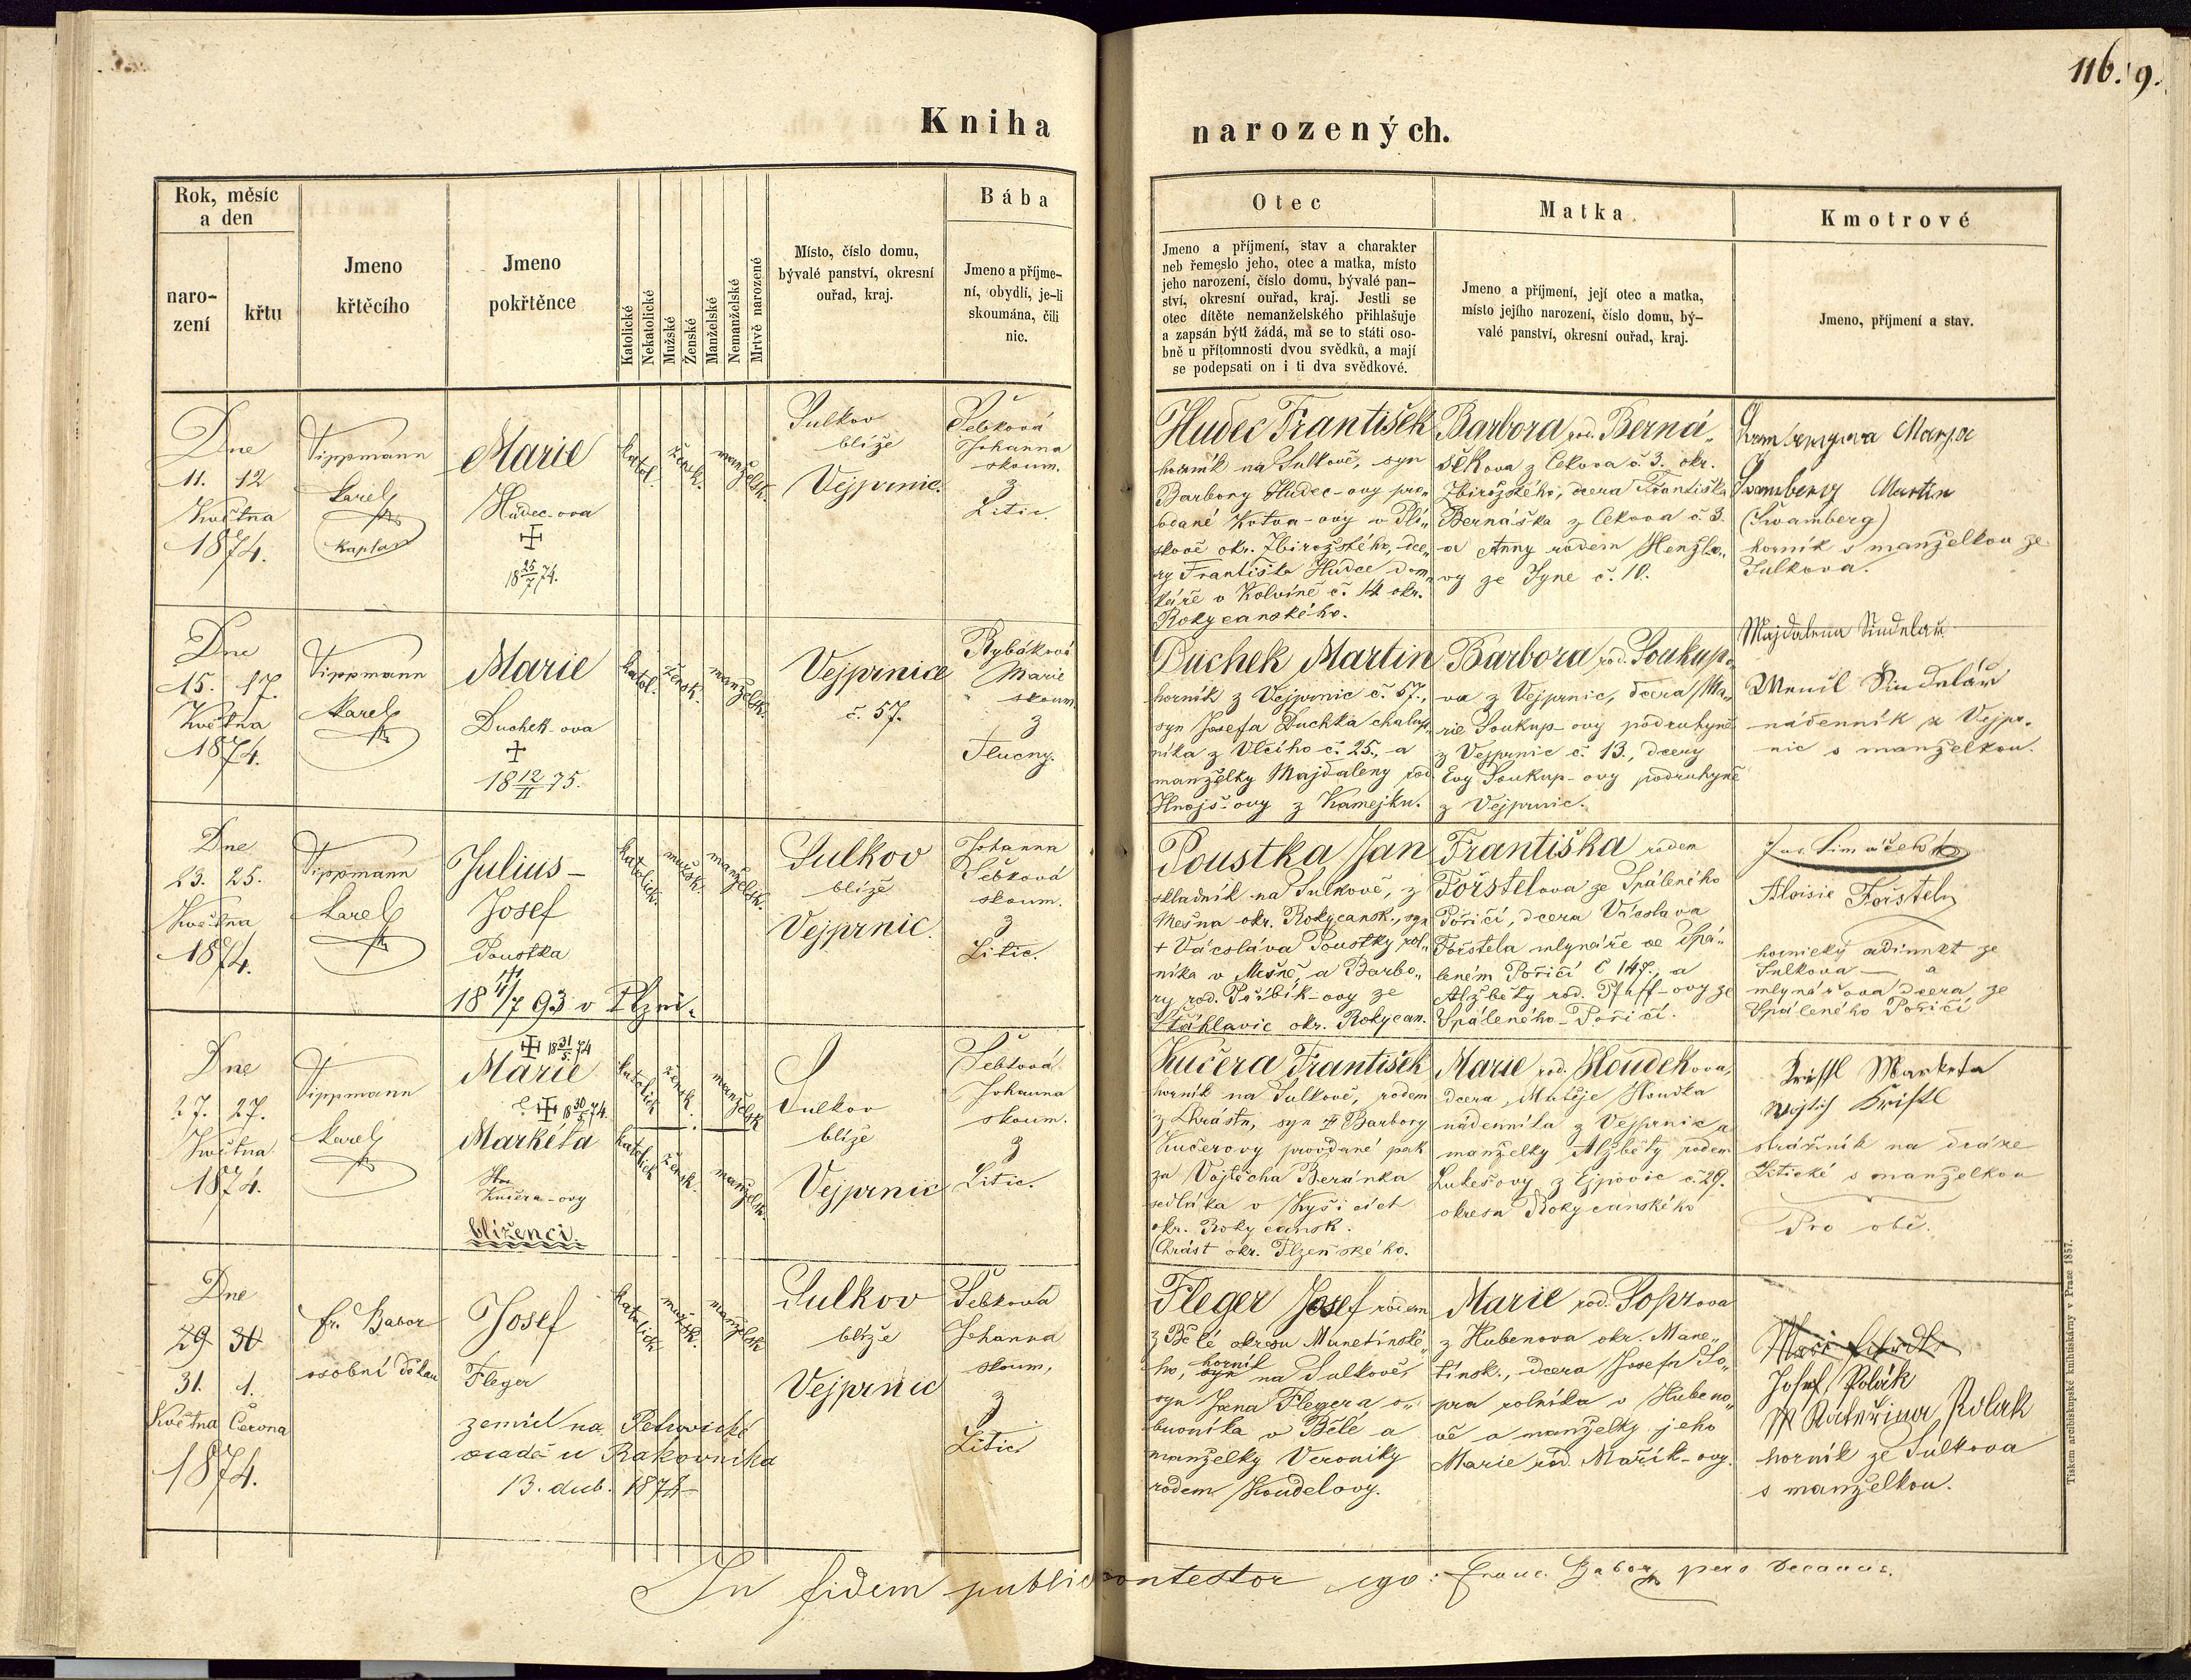 116. 9.
Kniha narozených.
Rok, měsíc
a den
naro-
zení
křtu
Jmeno
křtěcího
Jmeno
pokřtěnce
Katolické
Nekatolické
Mužské
Ženské
Manželské
Nemanželské
Mrtvě narozené
Místo, číslo domu,
bývalé panství, okresní
ouřad, kraj.
Bába
Jmeno a příjme-
ní, obydlí, je-li
skoumána, čili
nic.
Otec
Jmeno a příjmení, stav a charakter
neb řemeslo jeho, otec a matka, místo
jeho narození, číslo domu, bývalé pan-
ství, okresní ouřad, kraj. Jestli se
otec dítěte nemanželského přihlašuje
a zapsán býti žádá, má se to státi oso-
bně u přítomnosti dvou svědků, a mají
se podepsati on i ti dva svědkové.
Matka
Jmeno a příjmení, její otec a matka,
místo jejího narození, číslo domu, bý-
valé panství, okresní ouřad, kraj.
Kmotrové
Jmeno, příjmení a stav.
Dne
11. 12
Května
1874.
Tippmann
Karel
Kaplan
Marie
Hudec-ova
18 25/7 74.
katol.
žensk.
manželsk.
Sulkov
blíže
Vejprnic.
Šebková
Johanna
skoum.
z
Litic.
Hudec František
horník na Sulkově, syn
Barbory Hudec-ovy pro„
vdané Kotva-ovy v Plí„
skově okr. Zbirožského, dce„
ry Františka Hudce dom„
káře v Kolvíně č. 14 okr.
Rokycanského.
Barbora rod. Berná„
šKova z Cekova č. 3. okr.
Zbirožského, dcera Františka
Bernáška z Cekova č. 3.
a Anny rodem Henzlo„
vy ze Tyne č. 10.
Martin
(Švamberg)
horník s manželkou ze
Sulkova.
Dne
15. 17.
Května
1874.
Tippmann
Karel
Marie
Duchek-ova
18 12/II 75.
katol.
žensk.
manželsk.
Vejprnice
č. 57.
Rybáková
Marie
skoum.
z
Tlucny.
Duchek Martin
horník z Vejprnic č. 57.,
syn Josefa Duchka chalup„
níka z Vlčího č. 25., a
manželky Majdaleny rod.
Hnojš-ovy z Kamejku.
Barbora rod. Soukup„
va z Vejprnic, dcera Ma„
rie Soukup-ovy podruhyně
z Vejprnic č. 13., dcery
Evy Soukup-ovy podruhyně
z Vejprnic.
Majdalena Šindelář
Šindelář
nádenník z Vejpr„
nic s manželkou.
Dne
23. 25.
Května
1874.
Tippmann
Karel
Julius –
Josef
Poustka
18 4/7 93 v Plzni.
katolick.
mužsk.
manželsk.
Sulkov
blíže
Vejprnic.
Johanna
Šebková
skoum.
z
Litic.
Poustka Jan
skladník na Sulkově, z
Mešna okr. Rokycansk., syn
+ Václava Poustky rol„
níka v Mešně a Barbo„
ry rod. Přibík-ovy ze
Šťáhlavic okr. Rokycan.
Františka rodem
Förstelova ze Spáleného
Poříčí, dcera Václava
Förstela mlynáře ve Spá„
leném Poříčí č 147., a
Alžběty rod. Pfaff-ovy ze
Spáleného-Poříčí.
Aloisie Förstely
hornický adjunkt ze
Sulkova — a
mlynářova dcera ze
Spáleného Poříčí
Dne
27. 27.
Května
1874.
Tippmann
Karel
18 31/5 74
Marie
18 30/5 74.
Markéta
Kučera-ovy
blíženci.
katolick
žensk.
manželsk
katolick
žensk.
manželsk.
Sulkov
blíže
Vejprnic
Šebková
Johanna
skoum.
z
Litic.
Kučera František
horník na Sulkově, rodem
z Chrástu, syn Barbory
Kučerovy provdané pak
za Vojtěcha Beránka
sedláka v Kyšicích
okr. Rokycansk.
(Chrást okr. Plzeňského.
Marie rod. Houdekova,
dcera Matěje Houdka
nádenníka z Vejprnic a
manželky Alžběty rodem
Lukešovy z Ejpovic č. 29.
okresu Rokycanského
Kristl Marketa
Kristl
strážník na dráze
Litické s manželkou
Pro obě.
Dne
29 30
31. 1.
Května Června
1874.
Fr. Gabor
osobní děkan
Josef
Fleger
zemřel na Petrovické
osadě u Rakovníka
13. dub. 1874
katolick
mužsk.
manželsk
Sulkov
blíže
Vejprnic
Šebková
Johanna
skoum,
z
Litic
Fleger Josef rodem
z Bělé okresu Manetínské„
ho, syn horník na Sulkově,
syn Jana Flegera o„
buvníka v Bělé a
manželky Veroniky
rodem Koudelovy.
Marie rod. Soprova
z Hubenova okr. Mane„
tínsk., dcera Josefa So„
pra rolníka v Hubeno„
vě a manželky jeho
Marie rod. Mařík-ovy.
Josef Polák
Kateřina Polak
horník ze Sulkova
s manželkou.
In fidem public contestor ego: Franc. Gabor, pers decanus.
Tiskem arcibiskupské knihtiskárny v Praze 1857.